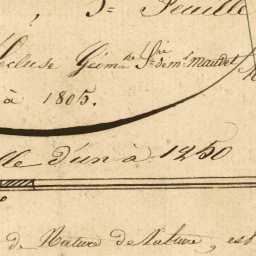 3e Feuille
écluse Géom. Sre de mr. Maudet
à 1805.
lle d'un à 1250
de Nature de Nature, est